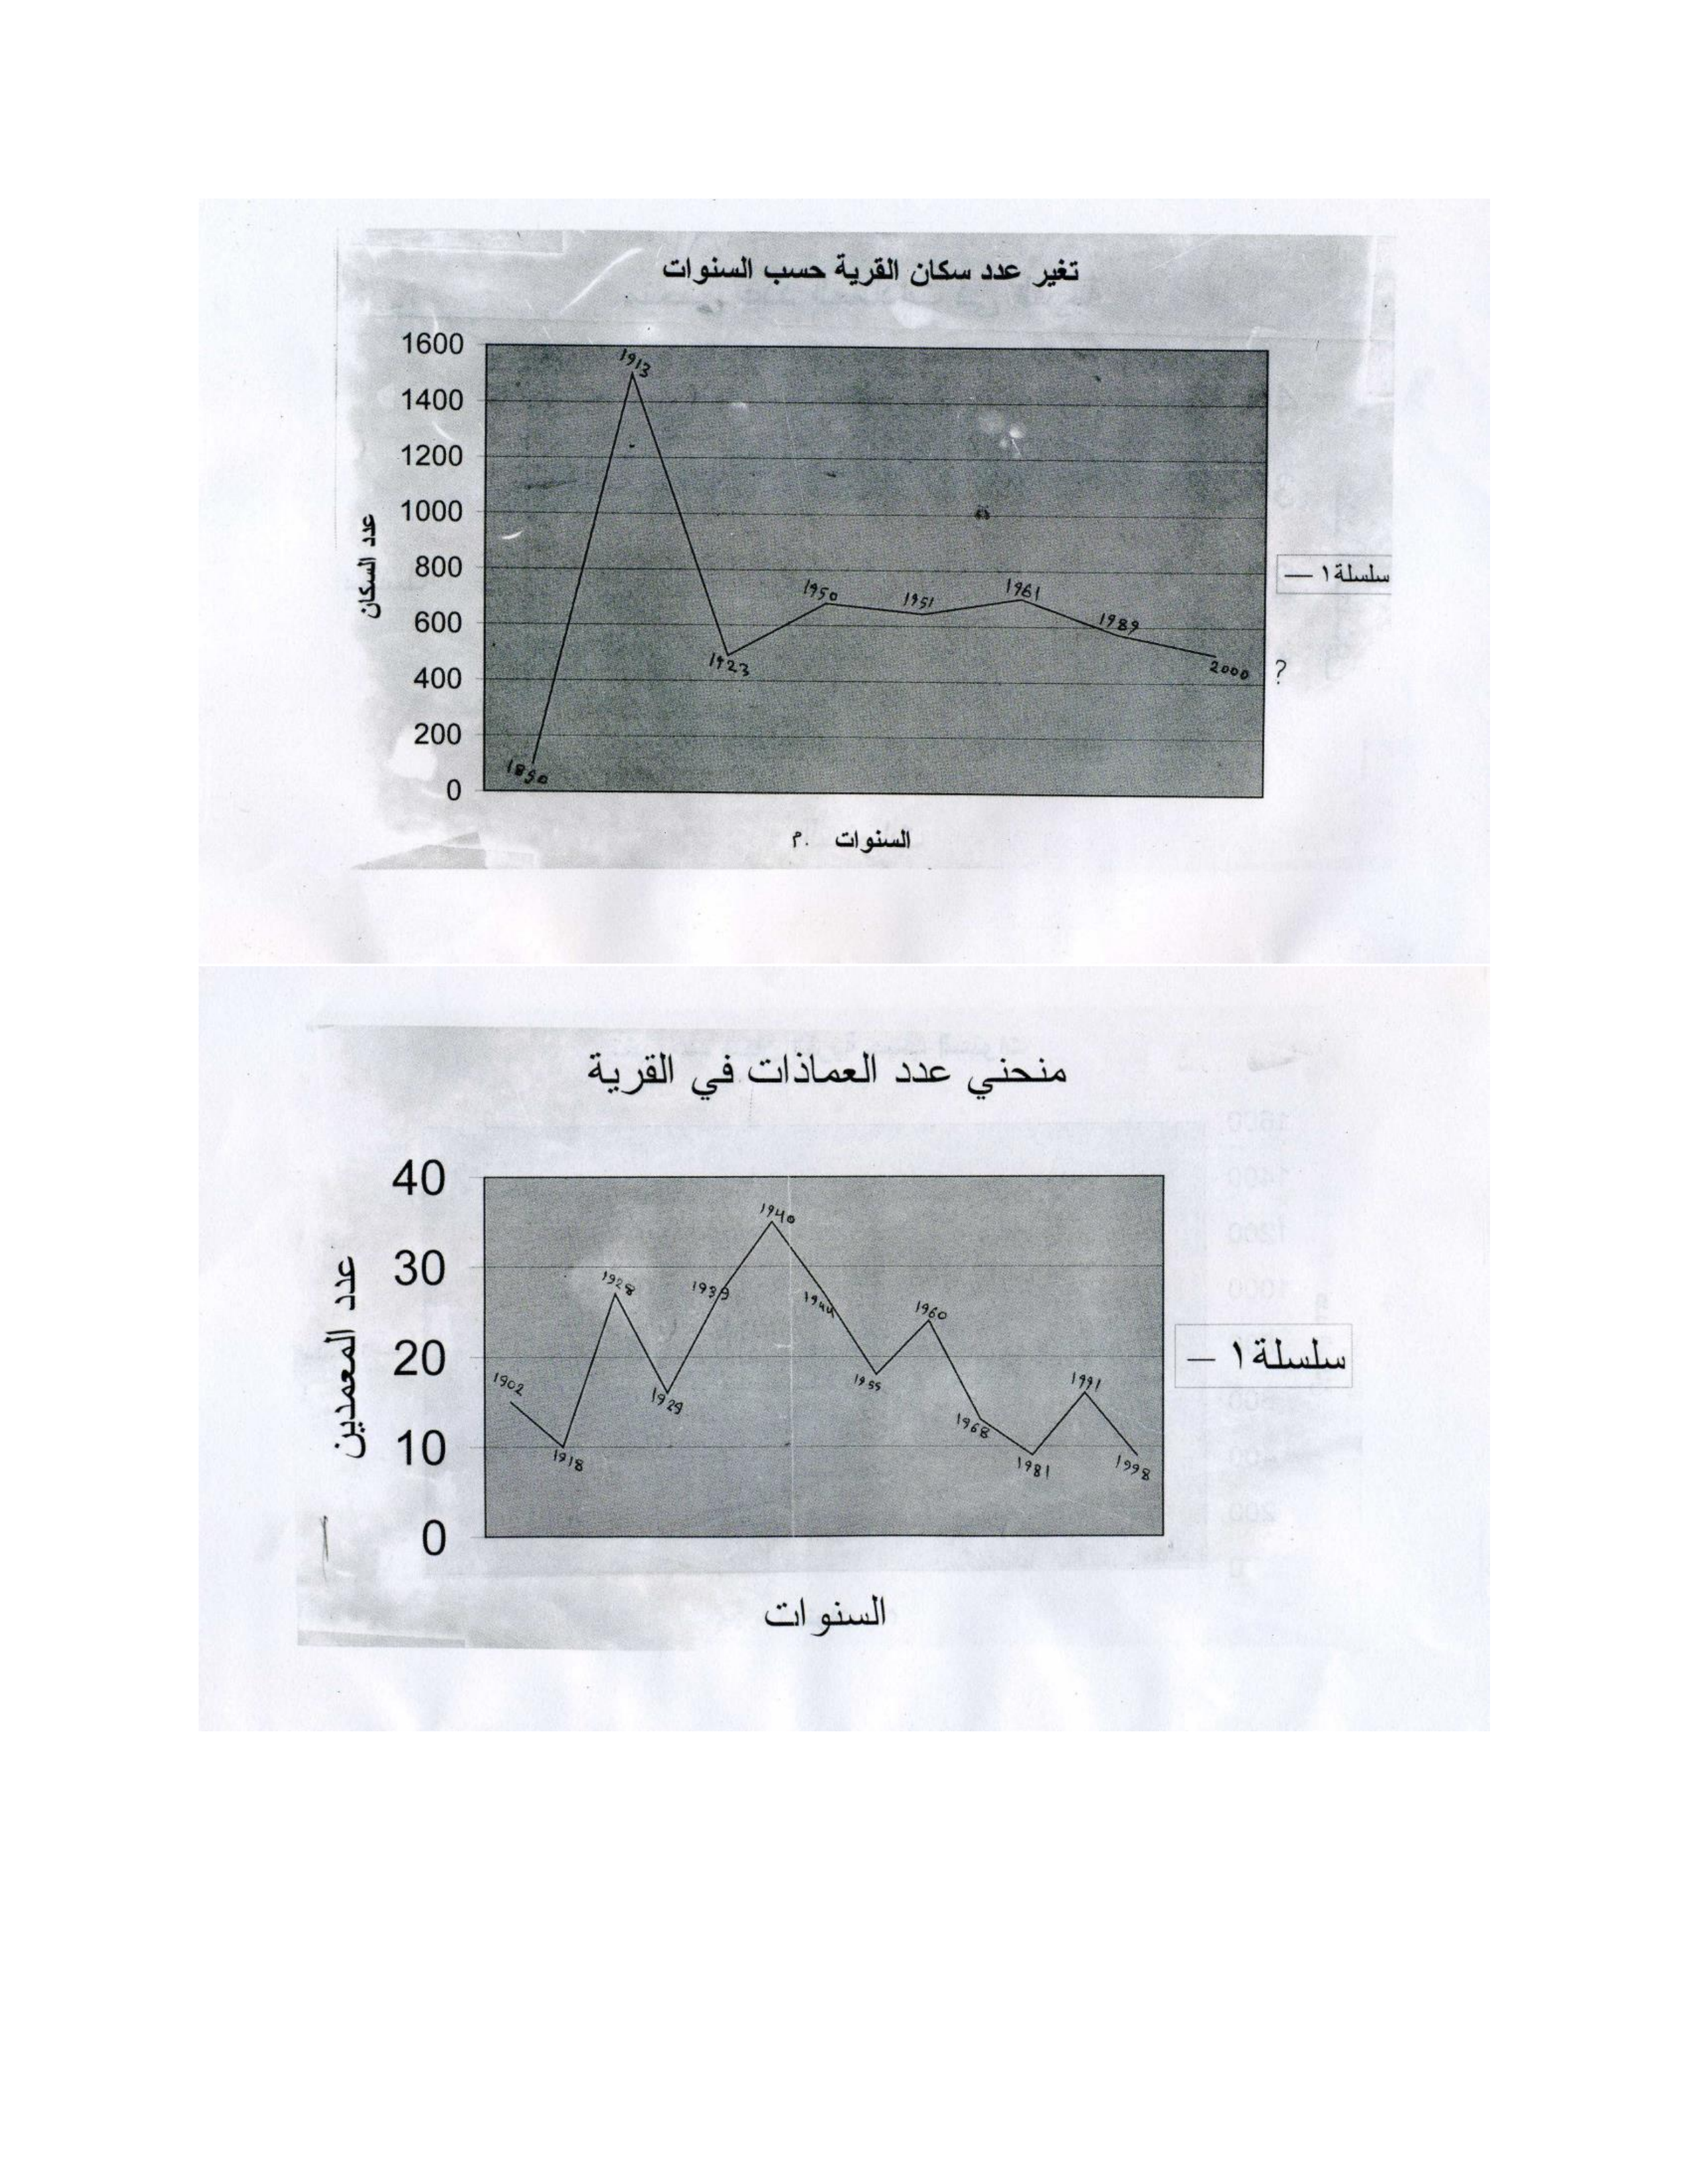 تغير عدد سكان القرية حسب السنوات
1600
1400
1200
1000
800
600
400
200
0
عدد السكان
1850
1913
1923
1950
1951
1961
1989
2000
?
سلسلة١
السنوات م.
منحني عدد العماذات في القرية
40
30
20
10
0
عدد المعمدين
1902
1918
1928
1929
1939
1940
1944
1955
1960
1968
1981
1991
1998
سلسلة١
السنوات